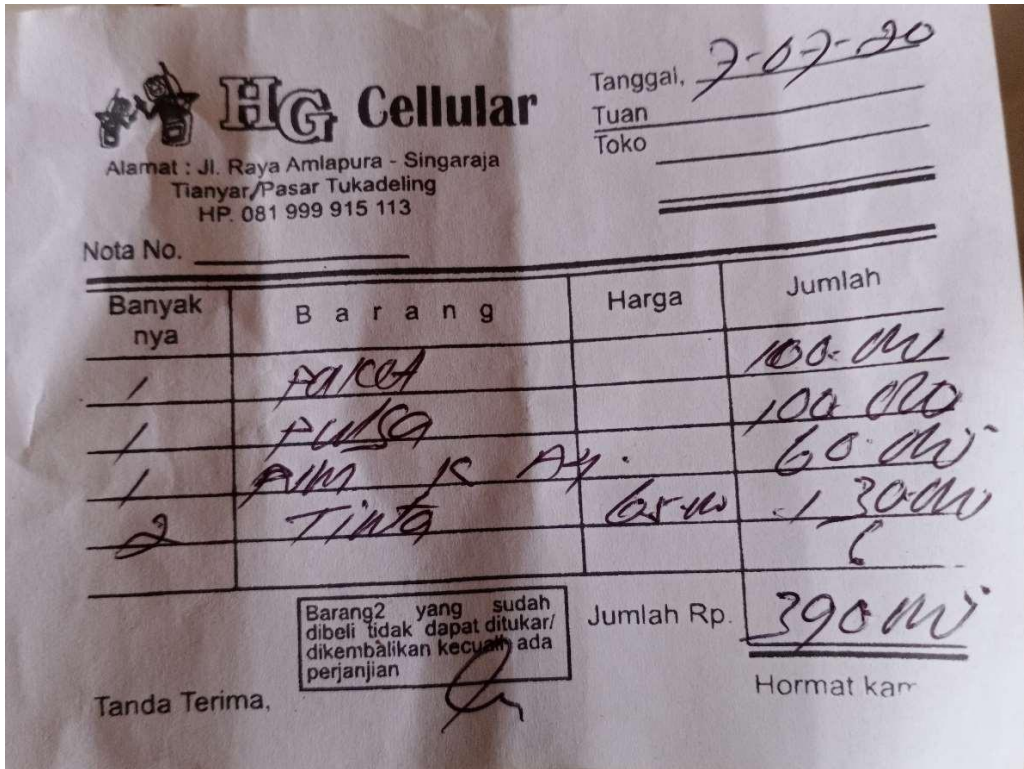 HG Cellular
Alamat : Jl. Raya Amlapura - Singaraja
Tianyar/Pasar Tukadeling
HP. 081 999 915 113
Tanggal, 7-07-20
Tuan
Toko
Nota No.
Banyak nya Barang Harga Jumlah
1 Paket 100.000
1 Pulsa 100.000
1 A4. 60.000
2 Tinta 65.000 130.000
Barang2 yang sudah
dibeli tidak dapat ditukar/
dikembalikan kecuali ada
perjanjian
Jumlah Rp. 390.000
Tanda Terima,
Hormat kam